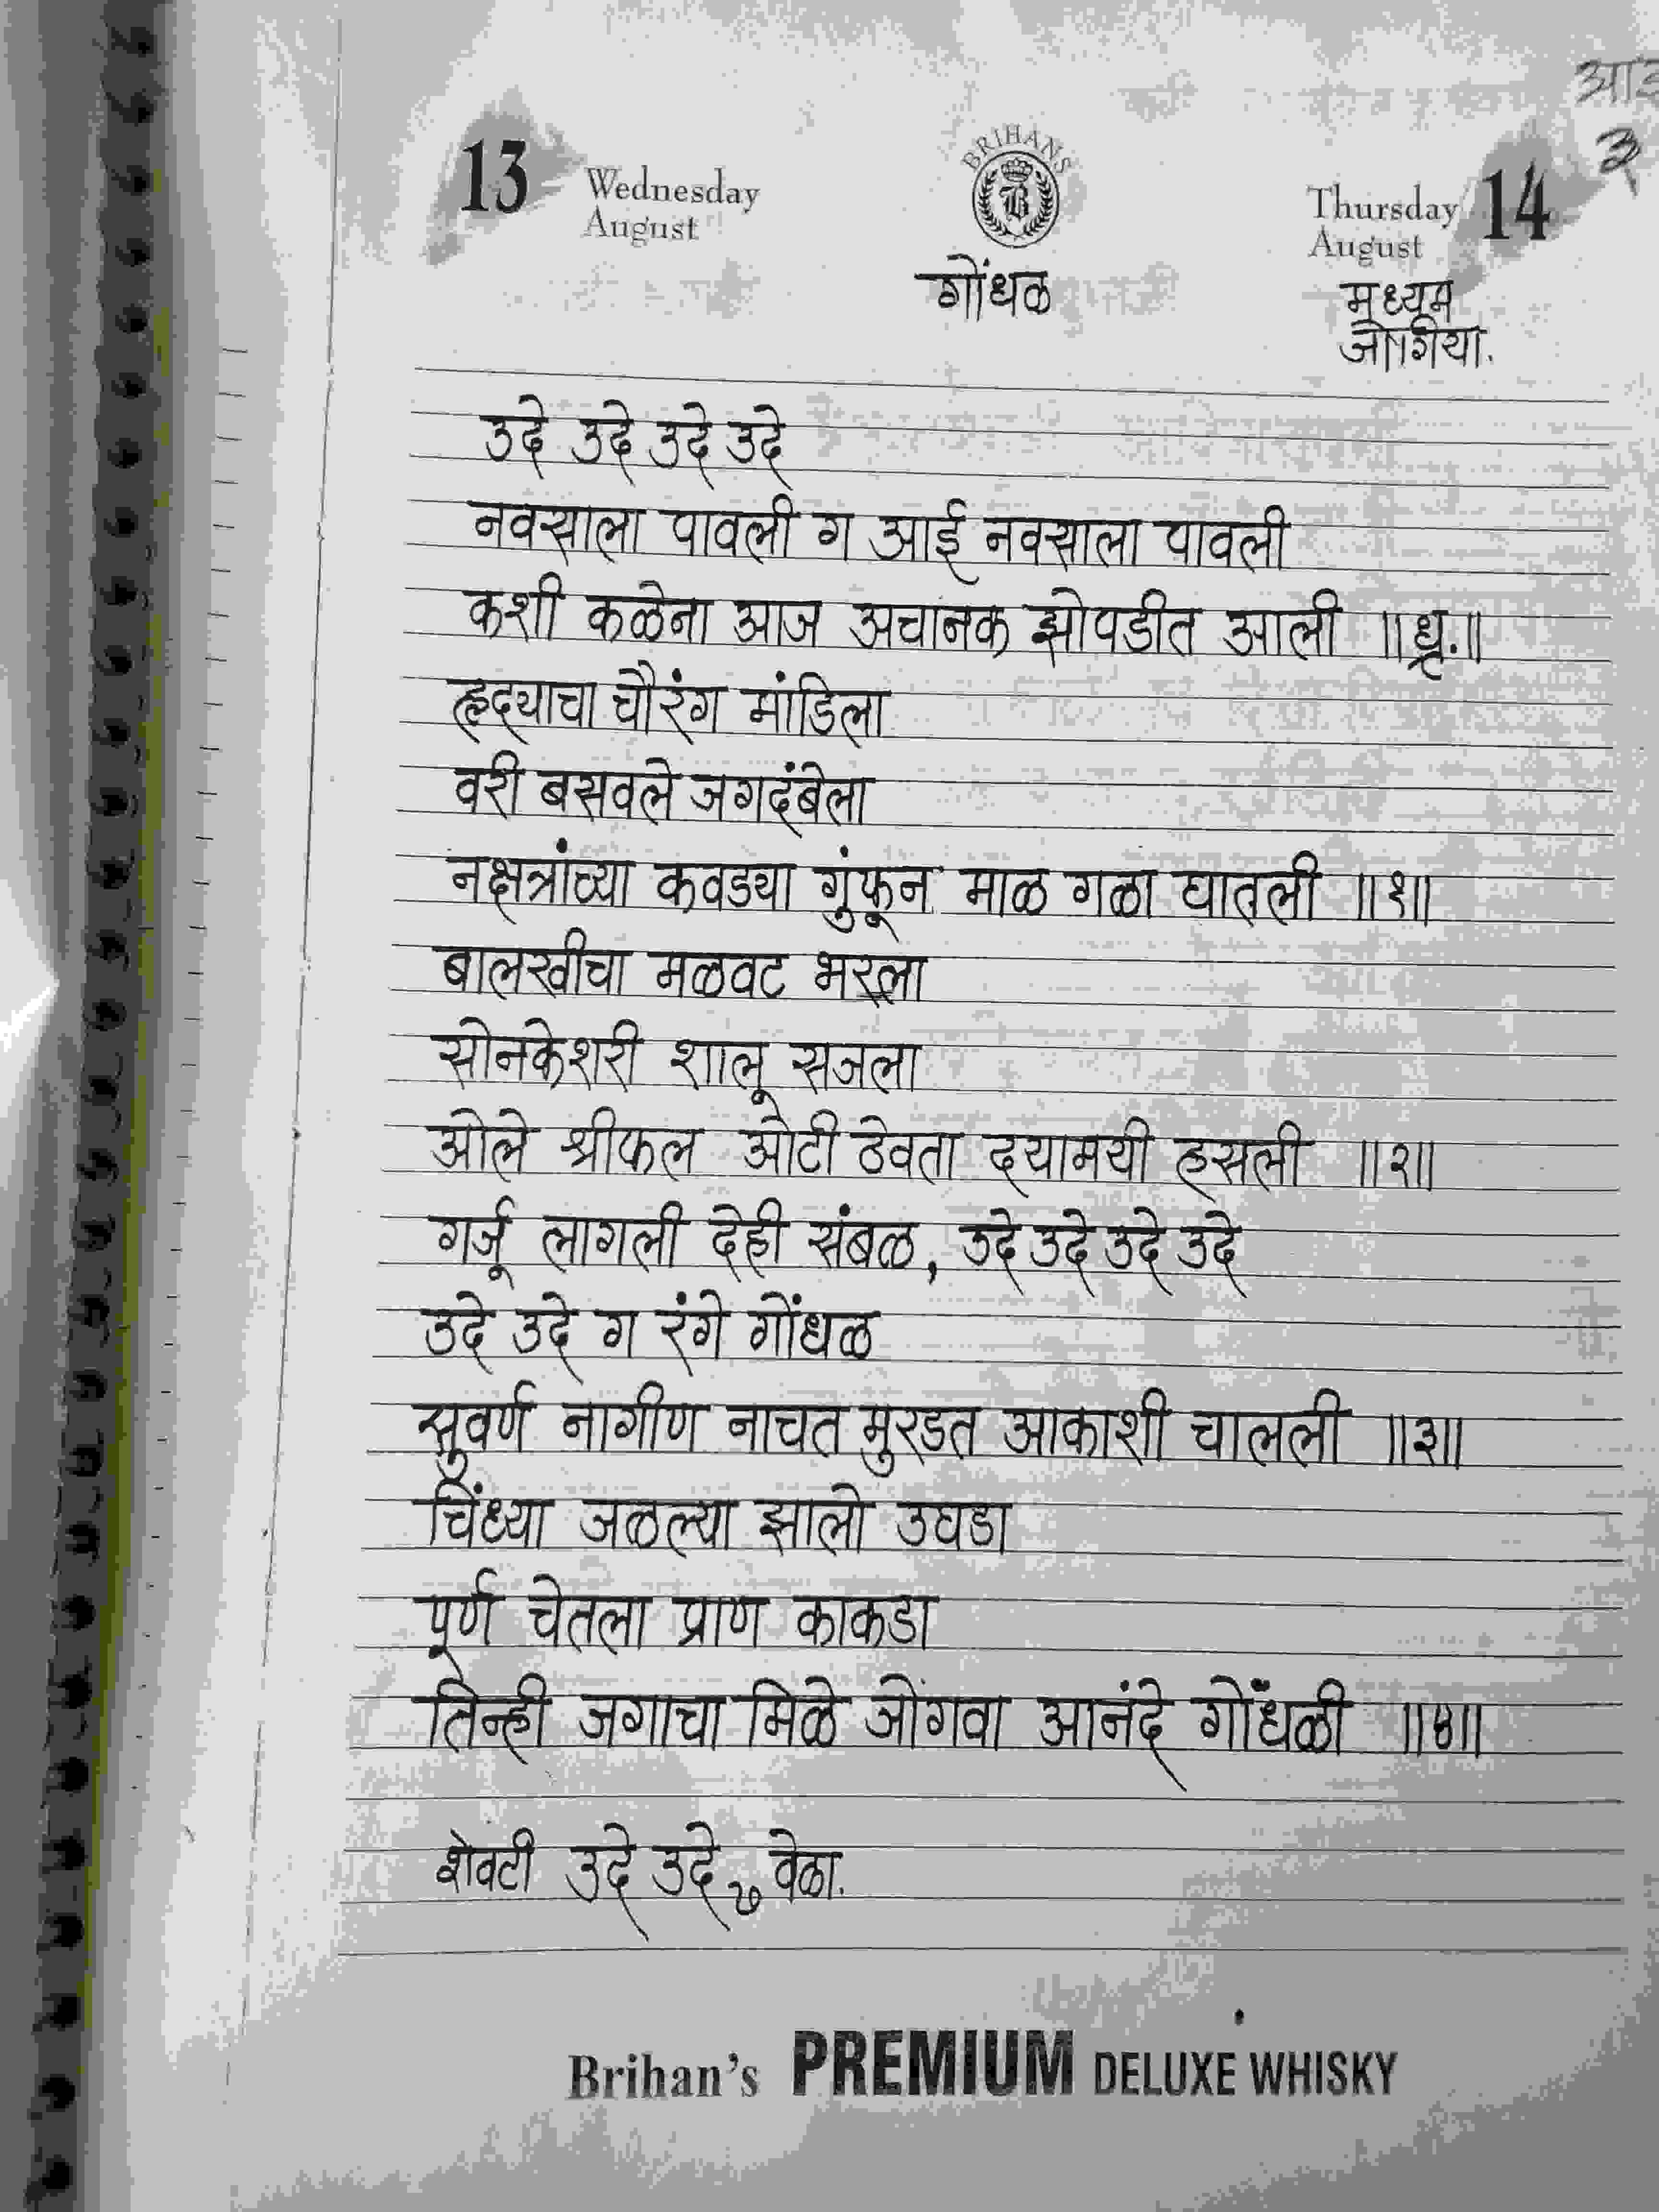 आई
३
13 Wednesday August
BRIHANS
B
Thursday August 14
गोंधळ
मध्यम
जोगिया.
उदे उदे उदे उदे
नवसाला पावली ग आई नवसाला पावली
कशी कळेना आज अचानक झोपडीत आली ॥धृ.॥
हृदयाचा चौरंग मांडिला
वरी बसवले जगदंबेला
नक्षत्रांच्या कवड्या गुंफून माळ गळा घातली ॥१॥
बालरवीचा मळवट भरला
सोनकेशरी शालू सजला
ओले श्रीफल ओटी ठेवता दयामयी हसली ॥२॥
गर्जू लागली देही संबळ, उदे उदे उदे उदे
उदे उदे ग रंगे गोंधळ
सुवर्ण नागीण नाचत मुरडत आकाशी चालली ॥३॥
चिंध्या जळल्या झालो उघडा
पूर्ण चेतला प्राण काकडा
तिन्ही जगाचा मिळे जोगवा आनंदे गोंधळी ॥४॥
शेवटी उदे उदे ७ वेळा.
Brihan's PREMIUM DELUXE WHISKY